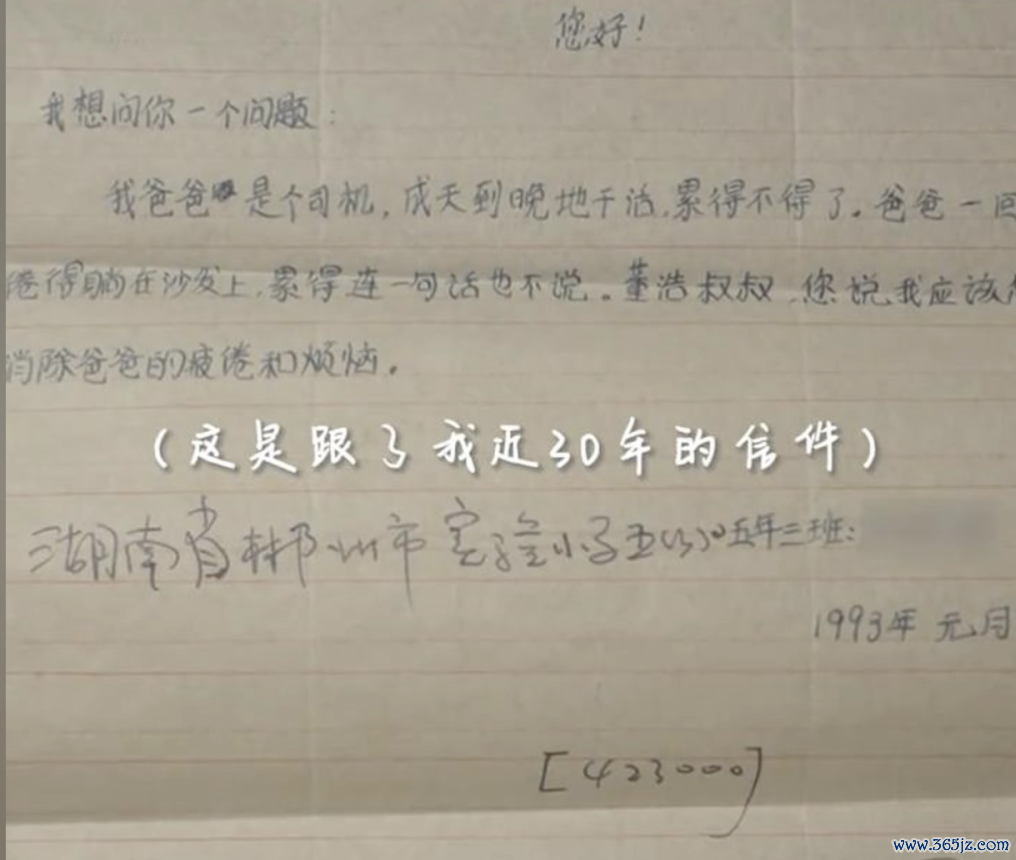 您好!
我想问你一个问题:
我爸爸是个司机,成天到晚地干活,累得不得了。爸爸一回
倦得躺在沙发上,累得连一句话也不说。董浩叔叔,您说我应该
消除爸爸的疲倦和烦恼。
(这是跟了我近30年的信件)
湖南省郴州市实验小学五(3)五年三班:
1993年 元月
[423000]
www.365jz.com